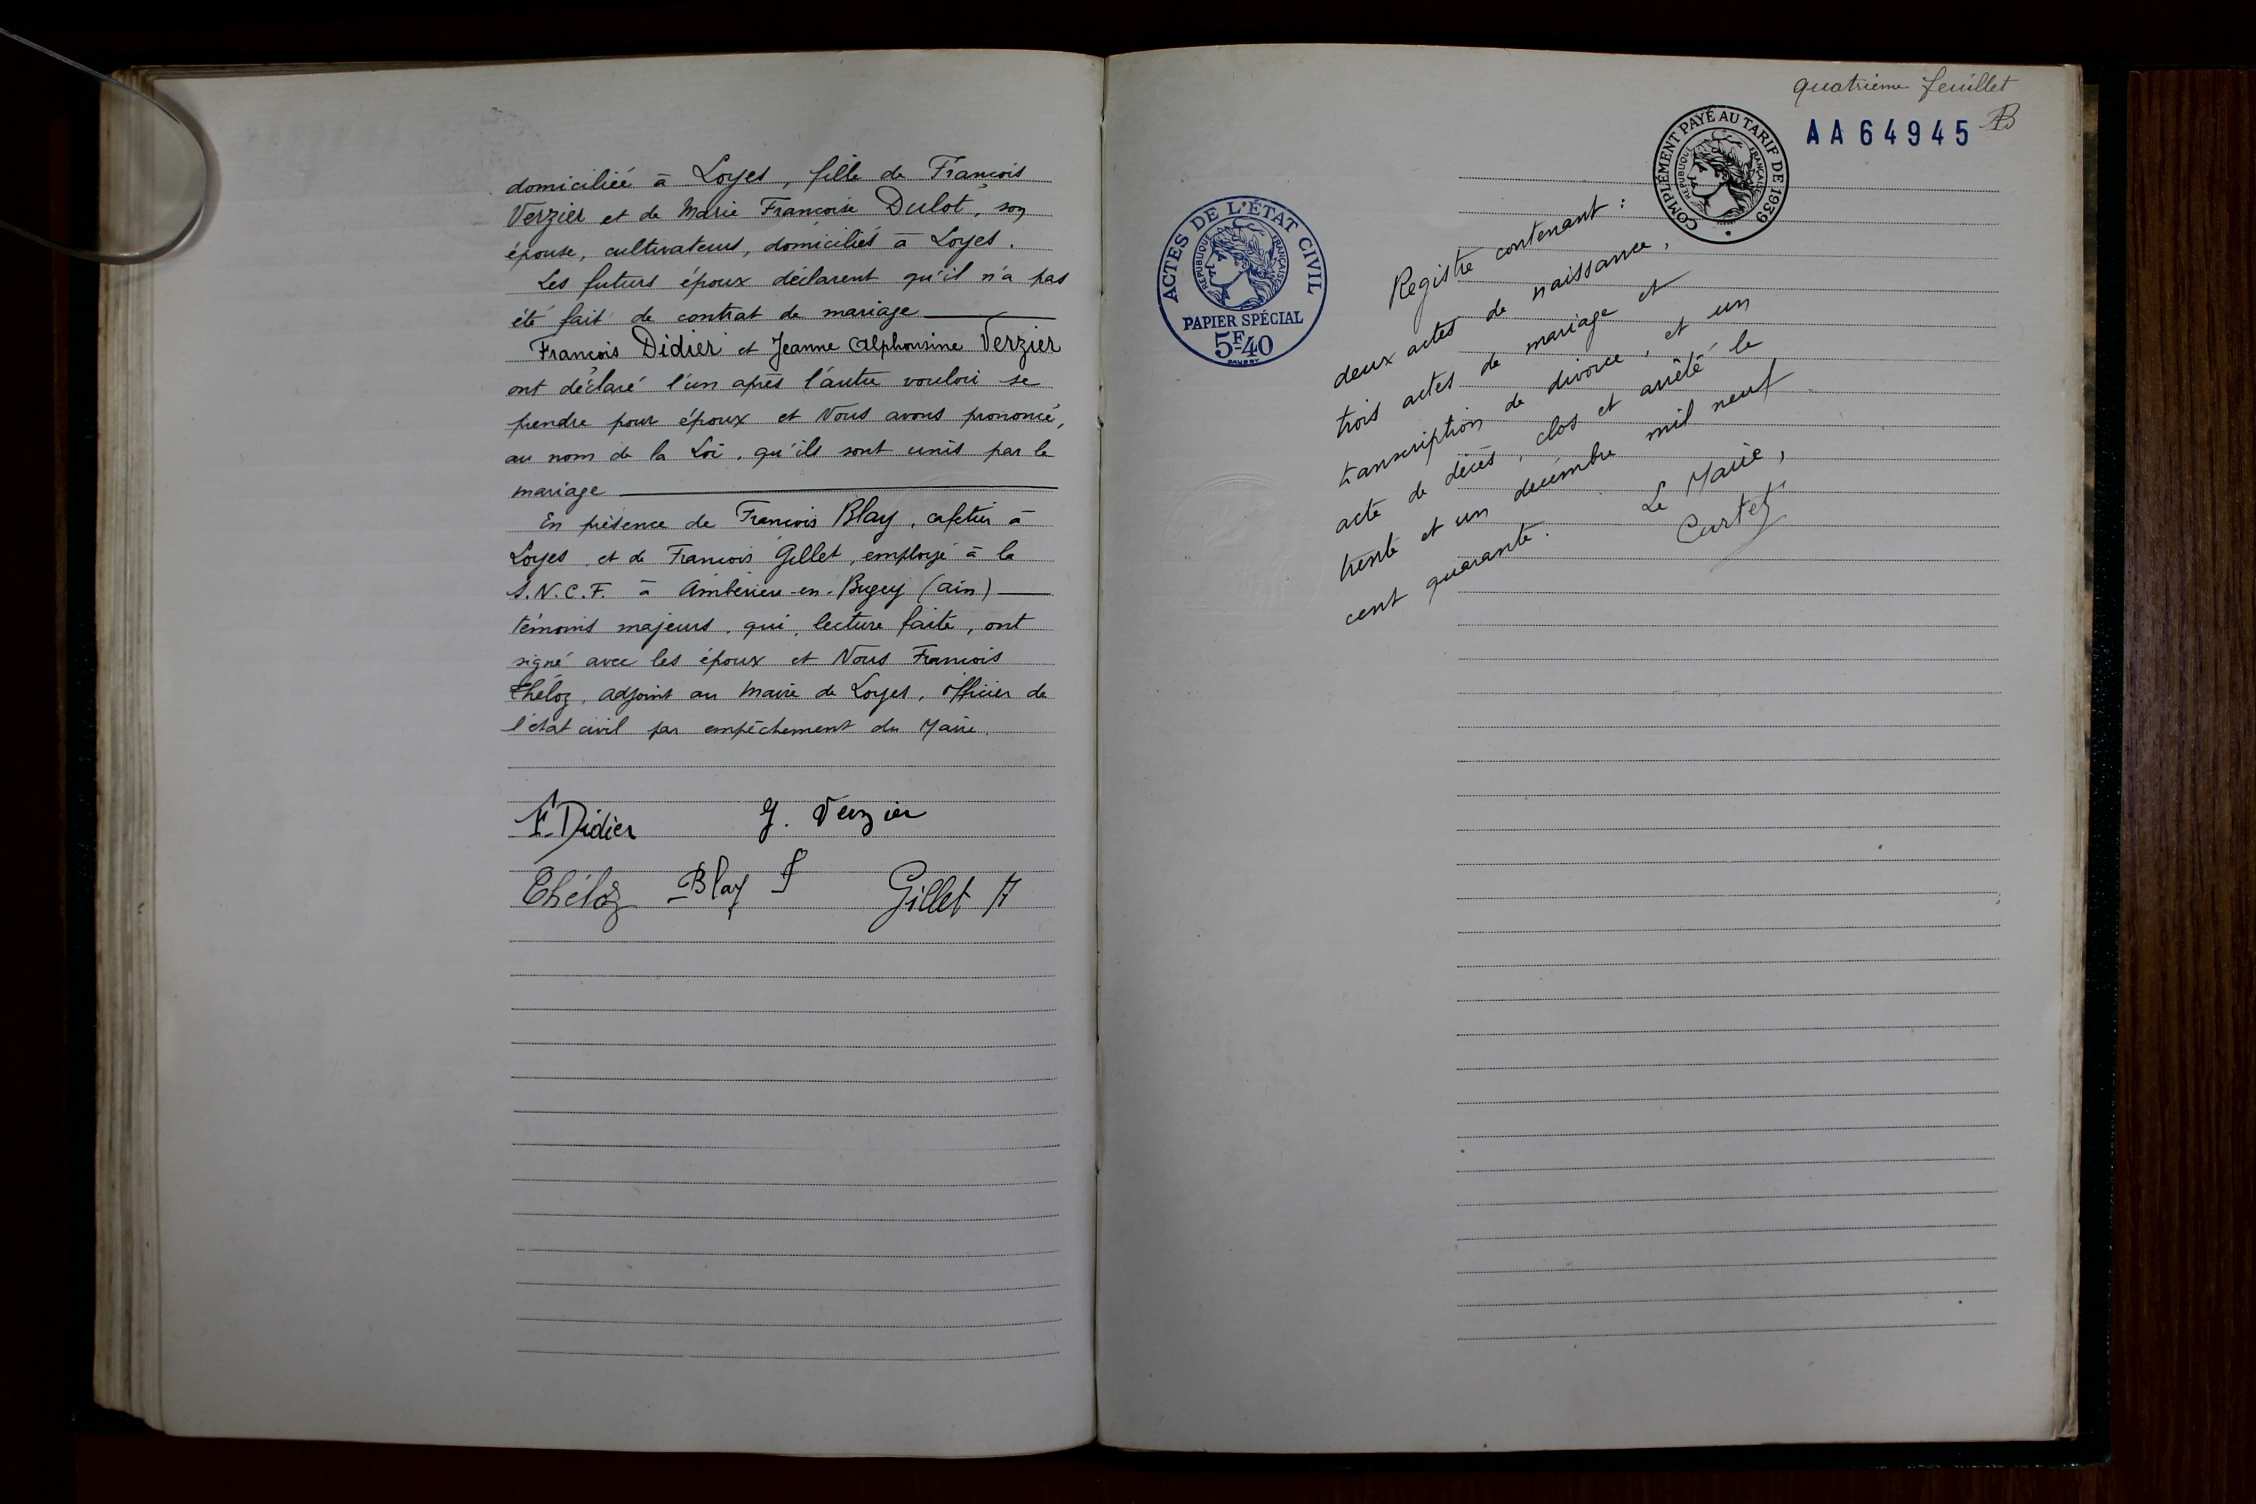 domiciliée à Loyes, fille de François
Verzier et de Marie Françoise Dulot, son
épouse, cultivateurs, domiciliés à Loyes.
Les futurs époux déclarent qu'il n'a pas
été fait de contrat de mariage
François Didier et Jeanne Alphonsine Verzier
ont déclaré l'un après l'autre vouloir se
prendre pour époux et Nous avons prononcé,
au nom de la Loi, qu'ils sont unis par le
mariage
En présence de François Blay, cafetier à
Loyes et de François Gillet, employé à la
S.N.C.F. à Ambérieu-en-Bugey (Ain)
témoins majeurs, qui, lecture faite, ont
signé avec les époux et Nous François
Théloz, adjoint au Maire de Loyes, officier de
l'état civil par empêchement du Maire.
F. Didier
J. Verzier
Théloz
Blay F
Gillet
quatrième feuillet
AA64945
COMPLÉMENT PAYÉ AU TARIF DE 1939
RÉPUBLIQUE FRANÇAISE
ACTES DE L'ÉTAT CIVIL
RÉPUBLIQUE FRANÇAISE
PAPIER SPÉCIAL
5F-40
Registre contenant :
deux actes de naissance,
trois actes de mariage et
transcription de divorce, et un
acte de décès, clos et arrêté le
trente et un décembre mil neuf
cent quarante.
Le Maire,
Curtet